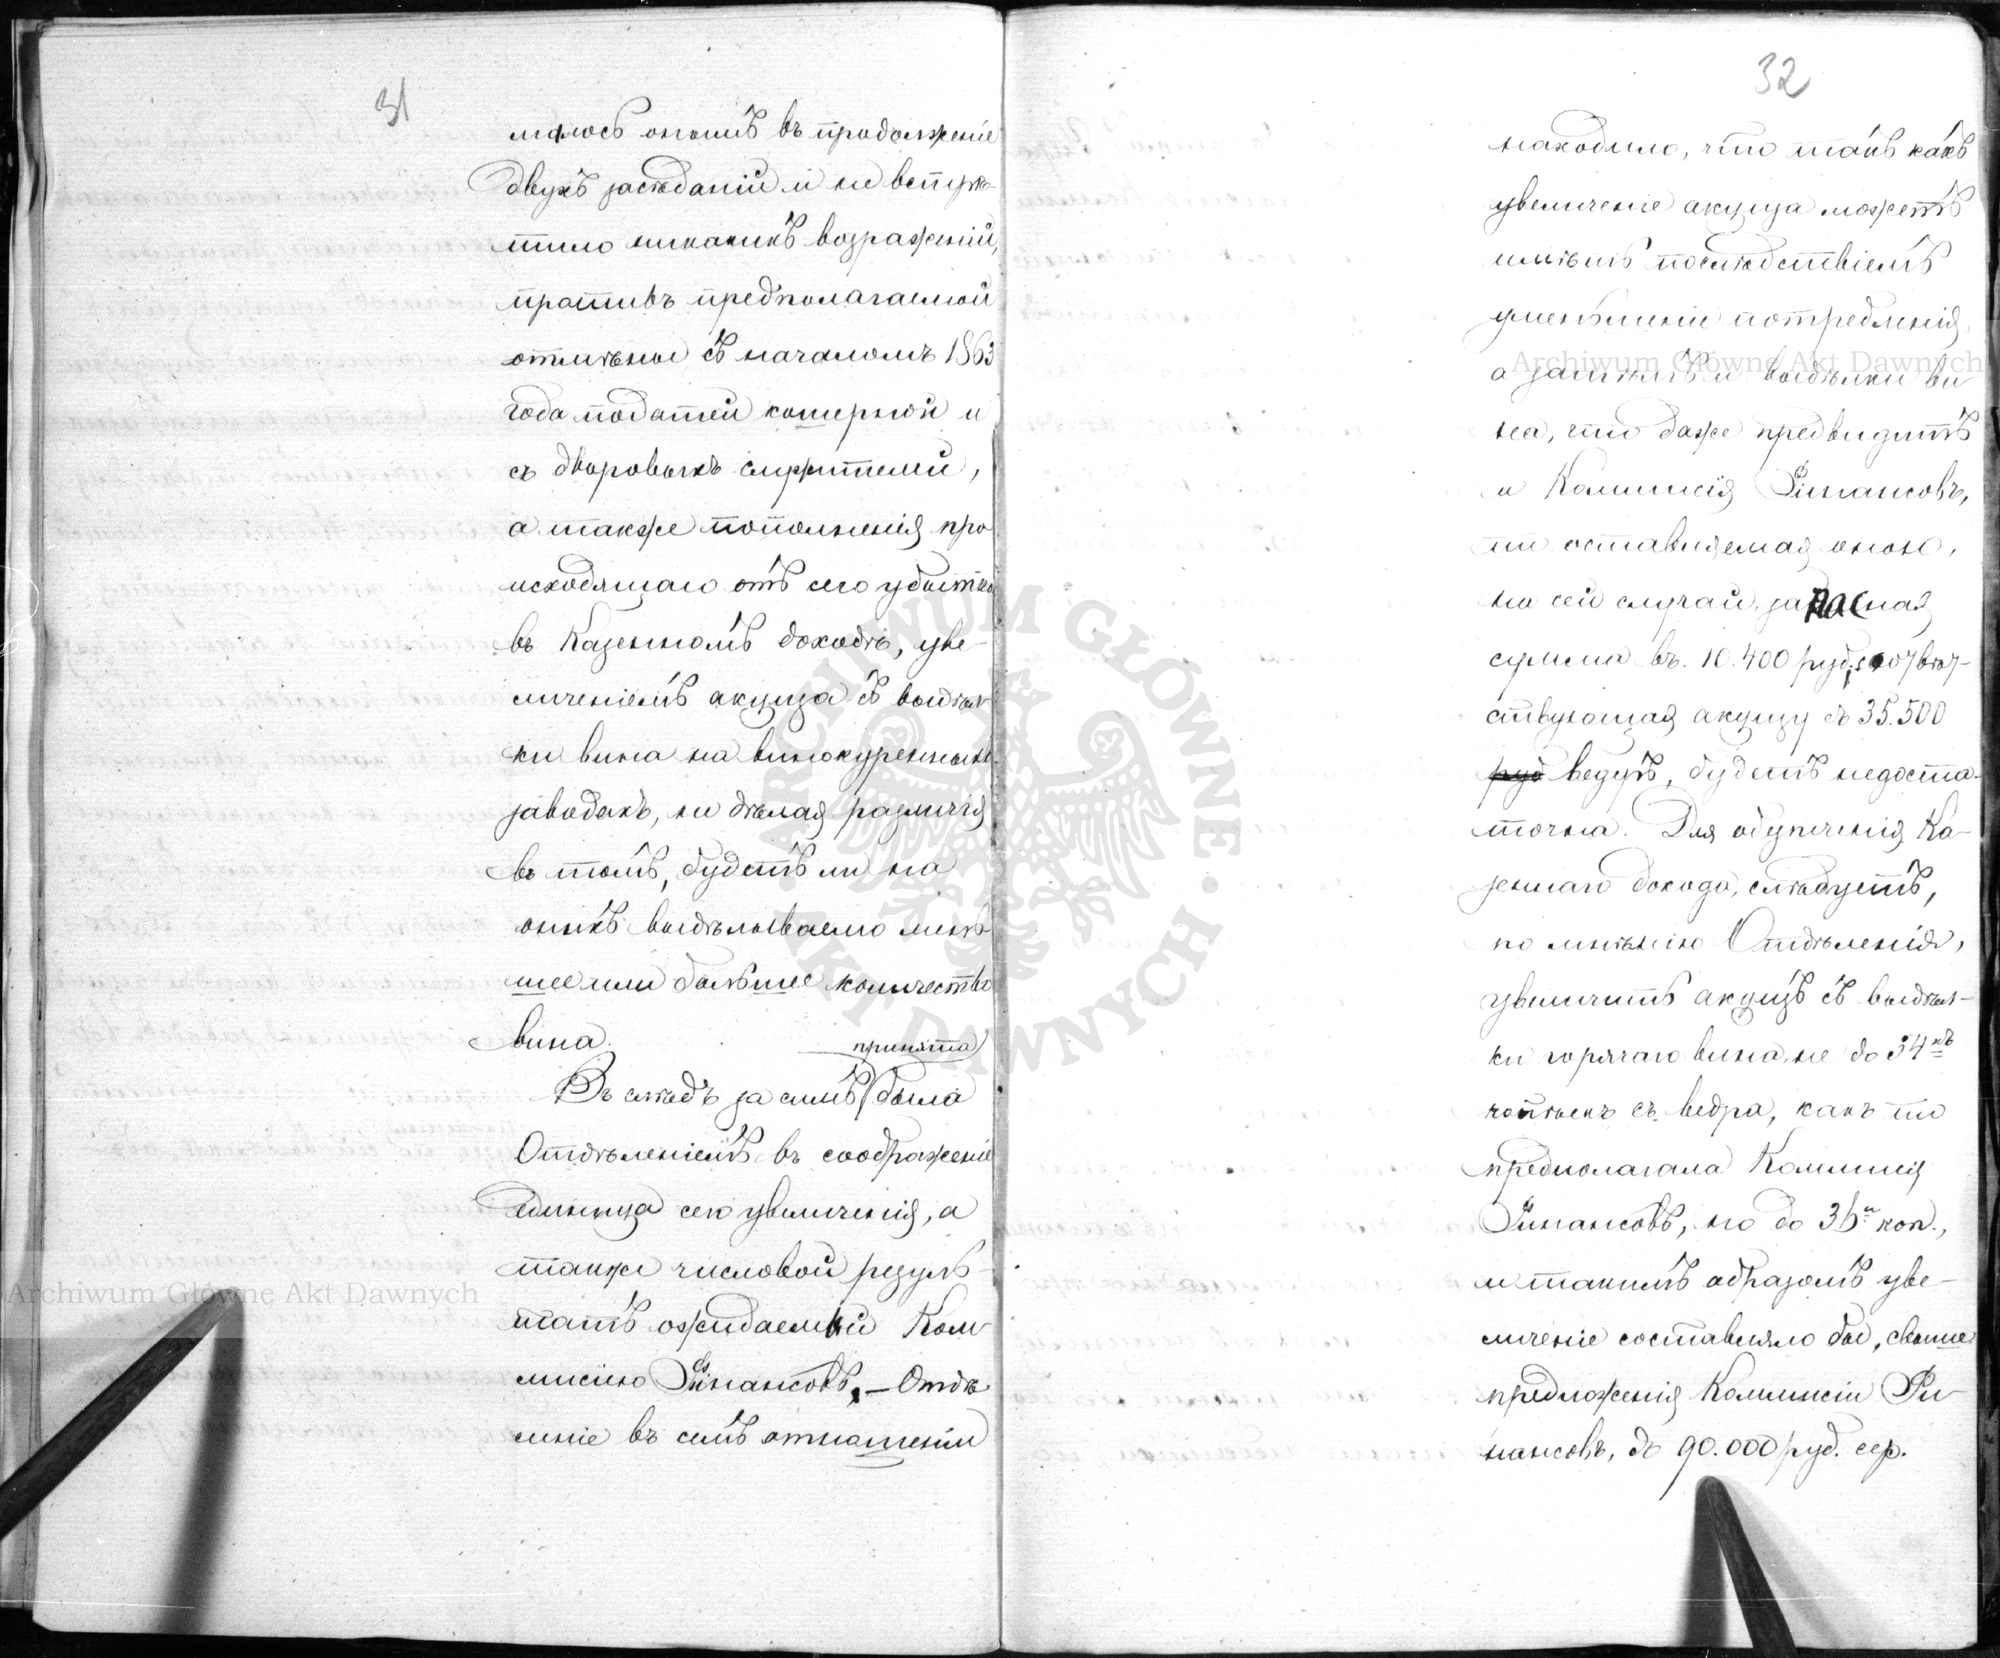 31
малось онымъ въ продолженіе
двухъ засѣданій и не встрѣ-
тило никакихъ возраженій,
противъ предполагаемой
отмѣны съ началомъ 1863
года податей кошерной и
съ дворовыхъ служителей,
а также пополненія про
исходящаго отъ сего убытка
въ Казенномъ доходѣ, уве-
личеніемъ акциза съ выдѣл
ки вина на винокуренныхъ
заводахъ, не дѣлая различія
въ томъ, будетъ ли на
оныхъ выдѣлываемо мень
шее или большее количество
вина.
принята
Въ слѣдъ за симъ была
Отдѣленіемъ въ соображеніе
единица сего увеличенія, а
также числовой резуль-
татъ ожидаемый Ком
мисіею Финансовъ, — Отдѣ
леніе въ семъ отношеніи
32
находило, что такъ какъ
увеличеніе акциза можетъ
имѣть послѣдствіемъ
уменьшеніе потребленія,
а затѣмъ и выдѣлки ви
на, что даже предвидитъ
и Коммисія Финансовъ,
то оставляемая оною,
на сей случай, запасная
сумма въ 10.400 руб; соотвѣт-
ствующая акцизу съ 35.500
руб ведръ, будетъ недоста-
точна. Для обезпеченія Ка-
зеннаго дохода, слѣдуетъ,
по мнѣнію Отдѣленія,
увеличить акцизъ съ выдѣл-
ки горячаго вина, не до 34хъ
копѣекъ съ ведра, какъ то
предполагала Коммисія
Финансовъ, но до 36и коп.,
и такимъ образомъ уве-
личеніе составляло бы, свыше
предложенія Коммисіи Фи-
нансовъ, до 90.000 руб. сер.
Archiwum Główne Akt Dawnych
Archiwum Główne Akt Dawnych
ARCHIWUM GŁÓWNE AKT DAWNYCH